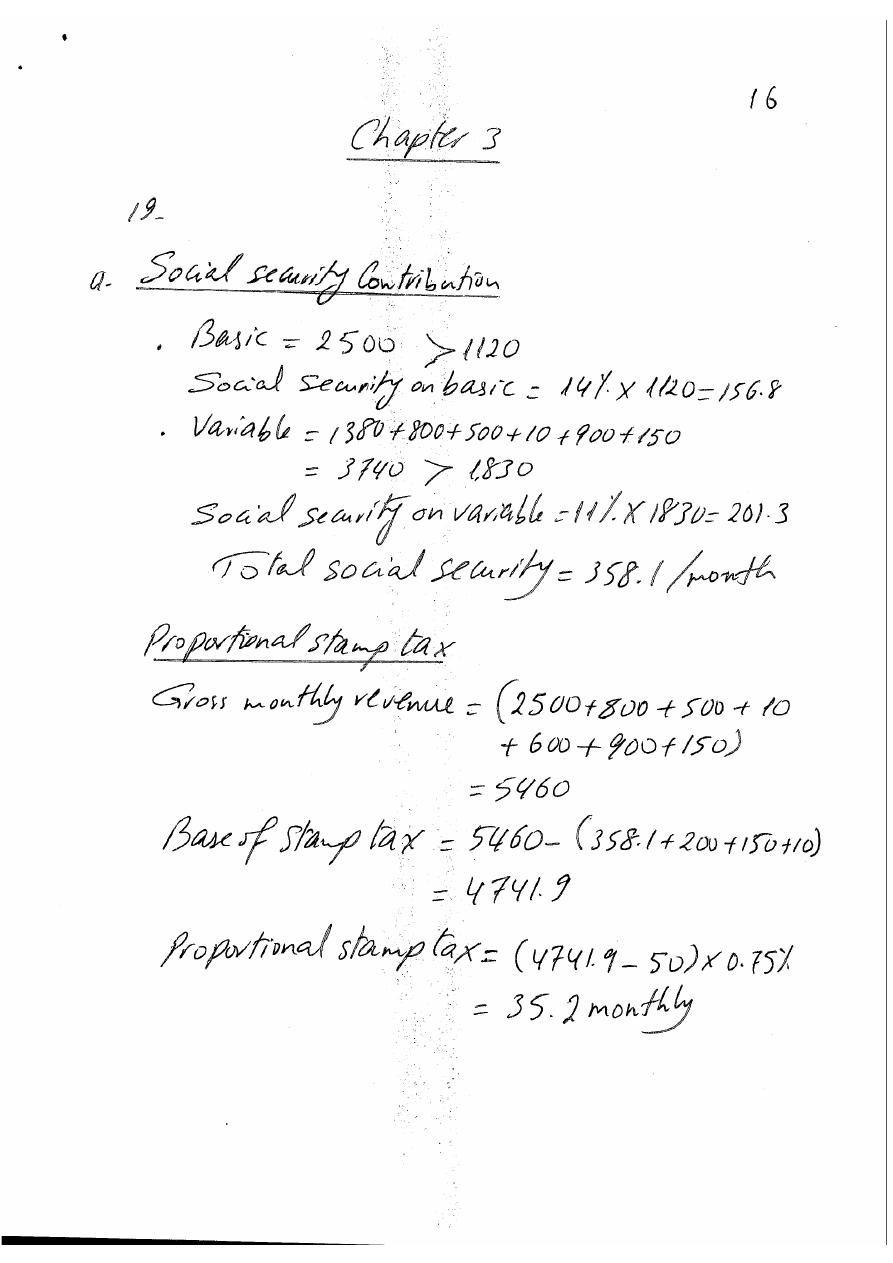 16
Chapter 3
19-
a- Social security Contribution
. Basic = 2500 > 1120
Social security on basic = 14% x 1120 = 156.8
. Variable = 1380 + 800 + 500 + 10 + 900 + 150
= 3740 > 1,830
Social security on variable = 11% x 1830 = 201.3
Total social security = 358.1 /month
Proportional stamp tax
Gross monthly revenue = (2500 + 800 + 500 + 10
+ 600 + 900 + 150)
= 5460
Base of stamp tax = 5460 - (358.1 + 200 + 150 + 10)
= 4741.9
Proportional stamp tax = (4741.9 - 50) x 0.75%
= 35.2 monthly